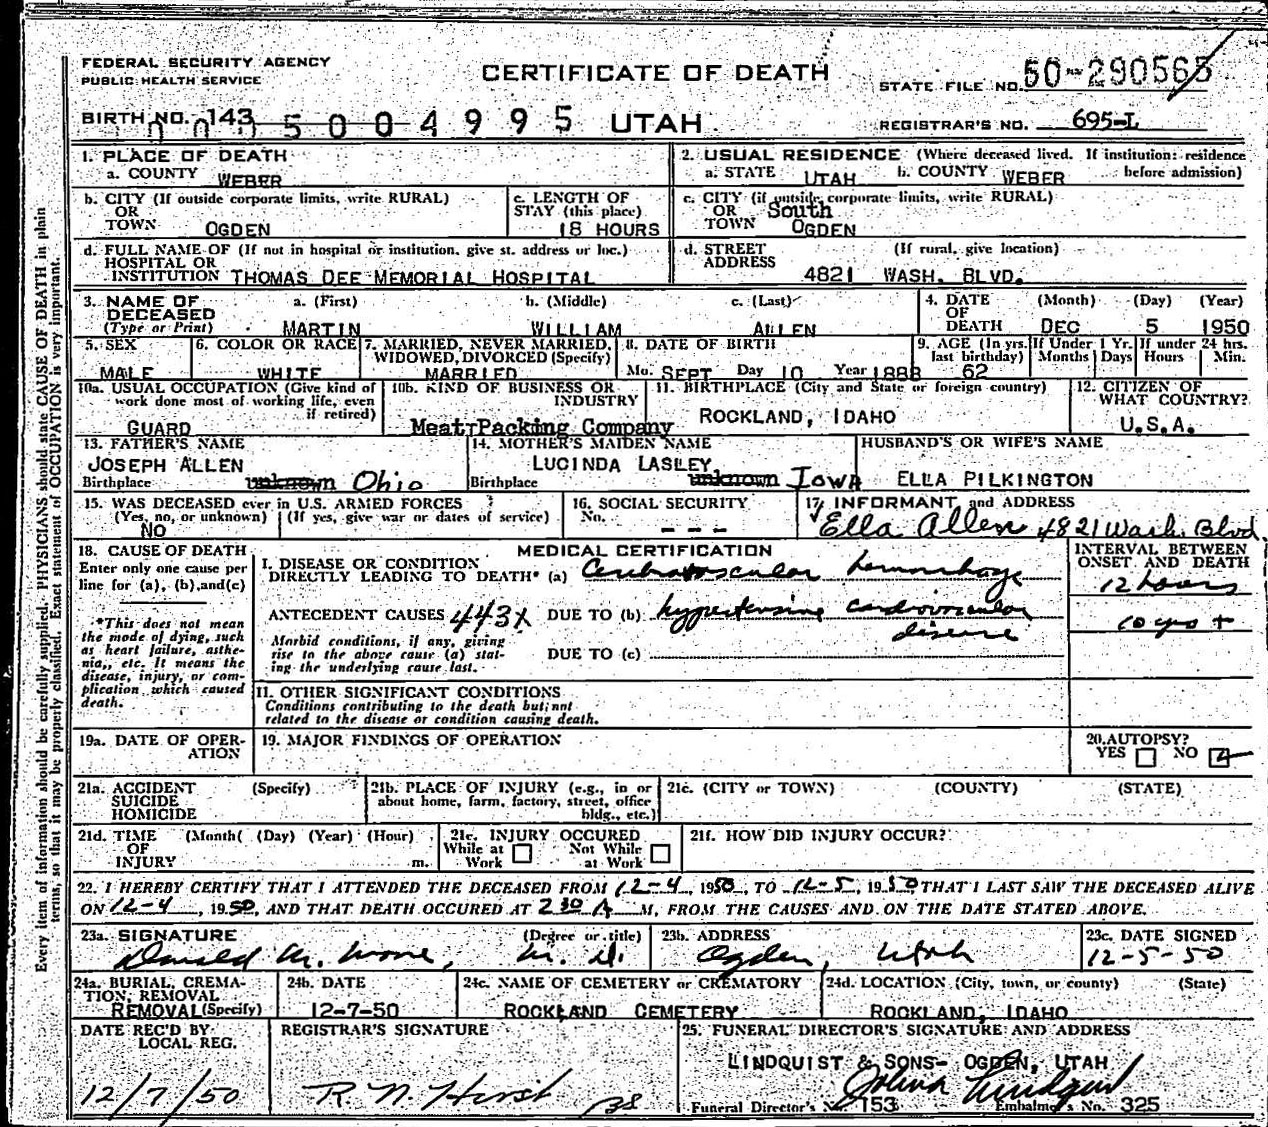 FEDERAL SECURITY AGENCY
PUBLIC HEALTH SERVICE
CERTIFICATE OF DEATH
STATE FILE NO. 50-290565
BIRTH NO. 143
5004995 UTAH
REGISTRAR'S NO. 695-L
1. PLACE OF DEATH
a. COUNTY WEBER
2. USUAL RESIDENCE (Where deceased lived. If institution: residence before admission)
a. STATE UTAH b. COUNTY WEBER
b. CITY (If outside corporate limits, write RURAL)
OR
TOWN OGDEN
c. LENGTH OF
STAY (this place)
18 HOURS
c. CITY (if outside corporate limits, write RURAL)
OR South
TOWN OGDEN
d. FULL NAME OF (If not in hospital or institution, give st. address or loc.)
HOSPITAL OR
INSTITUTION THOMAS DEE MEMORIAL HOSPITAL
d. STREET (If rural, give location)
ADDRESS 4821 WASH. BLVD.
3. NAME OF DECEASED (Type or Print)
a. (First) b. (Middle) c. (Last)
MARTIN WILLIAM ALLEN
4. DATE OF DEATH (Month) (Day) (Year)
DEC 5 1950
5. SEX
MALE
6. COLOR OR RACE
WHITE
7. MARRIED, NEVER MARRIED,
WIDOWED, DIVORCED (Specify)
MARRIED
8. DATE OF BIRTH
Mo. SEPT Day 10 Year 1888
9. AGE (In yrs. last birthday)
62
If Under 1 Yr. Months Days
If under 24 hrs. Hours Min.
10a. USUAL OCCUPATION (Give kind of
work done most of working life, even
if retired)
GUARD
10b. KIND OF BUSINESS OR
INDUSTRY
Meat Packing Company
11. BIRTHPLACE (City and State or foreign country)
ROCKLAND, IDAHO
12. CITIZEN OF
WHAT COUNTRY?
U.S.A.
13. FATHER'S NAME
JOSEPH ALLEN
Birthplace unknown Ohio
14. MOTHER'S MAIDEN NAME
LUCINDA LASLEY
Birthplace unknown IOWA
HUSBAND'S OR WIFE'S NAME
ELLA PILKINGTON
15. WAS DECEASED ever in U.S. ARMED FORCES ?
(Yes, no, or unknown) (If yes, give war or dates of service)
NO
16. SOCIAL SECURITY
No. - - -
17. INFORMANT and ADDRESS
Ella Allen 4821 Wash. Blvd.
18. CAUSE OF DEATH
Enter only one cause per
line for (a), (b), and (c)
*This does not mean
the mode of dying, such
as heart failure, asthe-
nia, etc. It means the
disease, injury, or com-
plication which caused
death.
MEDICAL CERTIFICATION
I. DISEASE OR CONDITION
DIRECTLY LEADING TO DEATH* (a) Cerebrovascular hemorrhage
ANTECEDENT CAUSES 443X DUE TO (b) hypertensive cardiovascular
disease
Morbid conditions, if any, giving
rise to the above cause (a) stat-
ing the underlying cause last.
DUE TO (c)
INTERVAL BETWEEN
ONSET AND DEATH
12 hours
10 yrs +
II. OTHER SIGNIFICANT CONDITIONS
Conditions contributing to the death but not
related to the disease or condition causing death.
19a. DATE OF OPER-
ATION
19. MAJOR FINDINGS OF OPERATION
20. AUTOPSY?
YES NO
21a. ACCIDENT (Specify)
SUICIDE
HOMICIDE
21b. PLACE OF INJURY (e.g., in or
about home, farm, factory, street, office
bldg., etc.)
21c. (CITY or TOWN) (COUNTY) (STATE)
21d. TIME (Month( (Day) (Year) (Hour)
OF
INJURY m.
21e. INJURY OCCURED
While at Work
Not While at Work
21f. HOW DID INJURY OCCUR?
22. I HEREBY CERTIFY THAT I ATTENDED THE DECEASED FROM 12-4, 1950, TO 12-5, 1950 THAT I LAST SAW THE DECEASED ALIVE
ON 12-4, 1950, AND THAT DEATH OCCURED AT 2 30 A M, FROM THE CAUSES AND ON THE DATE STATED ABOVE.
23a. SIGNATURE (Degree or title)
Donald M. Moore, M. D.
23b. ADDRESS
Ogden, Utah
23c. DATE SIGNED
12-5-50
24a. BURIAL, CREMA-
TION, REMOVAL
REMOVAL (Specify)
24b. DATE
12-7-50
24c. NAME OF CEMETERY or CREMATORY
ROCKLAND CEMETERY
24d. LOCATION (City, town, or county) (State)
ROCKLAND, IDAHO
DATE REC'D BY
LOCAL REG.
12/7/50
REGISTRAR'S SIGNATURE
R. N. Hirst
25. FUNERAL DIRECTOR'S SIGNATURE AND ADDRESS
LINDQUIST & SONS- OGDEN, UTAH
Funeral Director's No. 153 Embalmer's No. 325
Every item of information should be carefully supplied. PHYSICIANS should state CAUSE OF DEATH in plain
terms, so that it may be properly classified. Exact statement of OCCUPATION is very important.